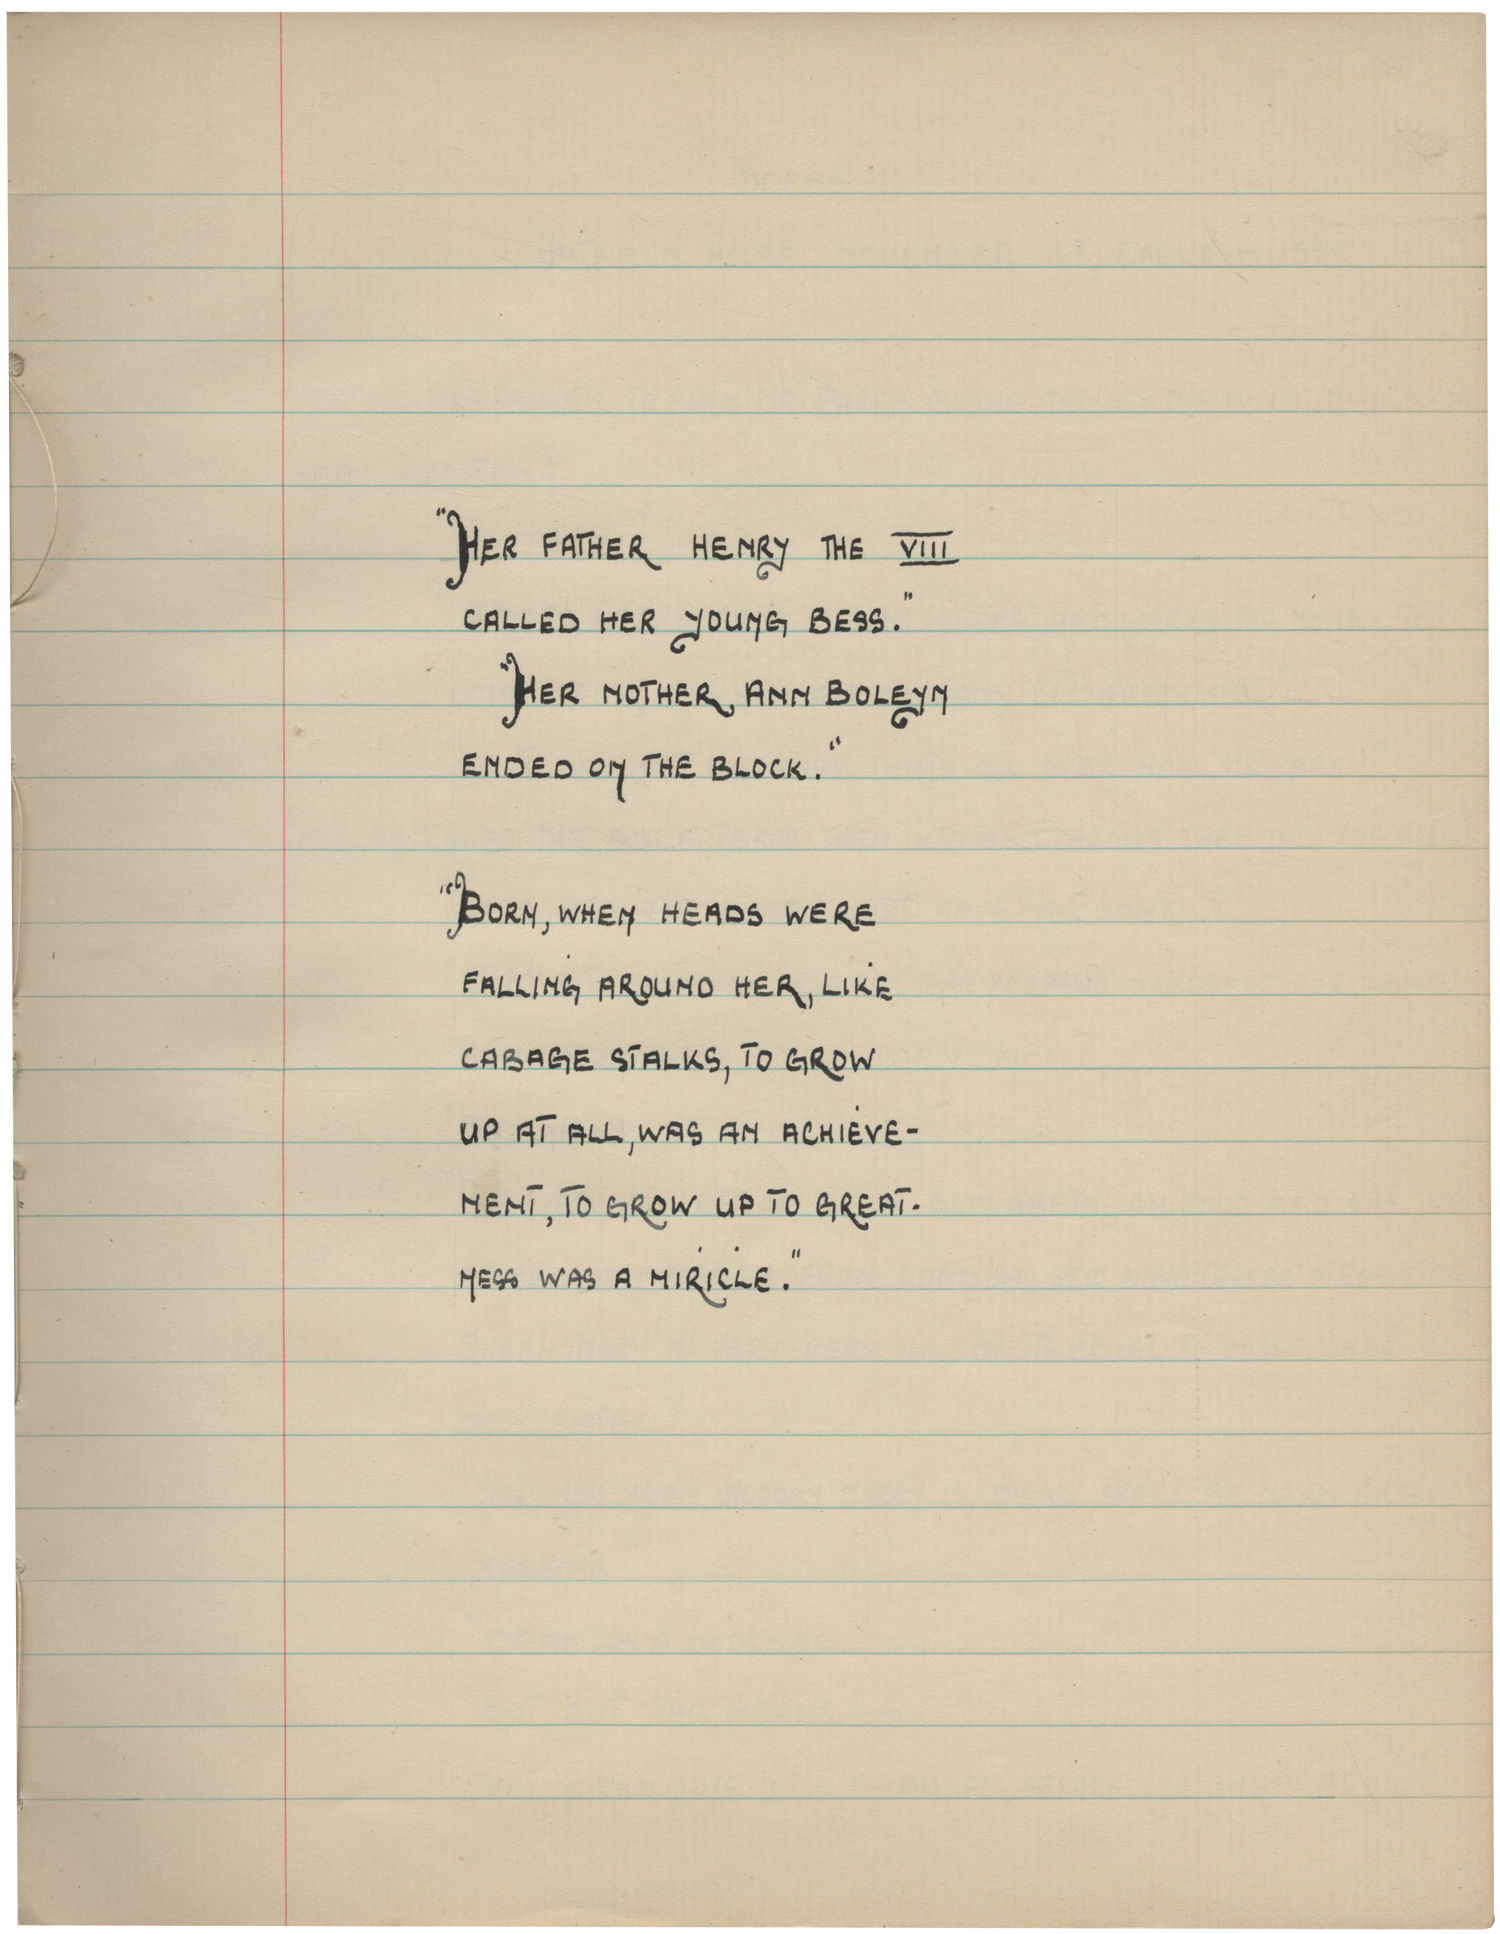 "HER FATHER HENRY THE VIII
CALLED HER YOUNG BESS."
"HER MOTHER, ANN BOLEYN
ENDED ON THE BLOCK."
"BORN, WHEN HEADS WERE
FALLING AROUND HER, LIKE
CABAGE STALKS, TO GROW
UP AT ALL, WAS AN ACHIEVE-
MENT, TO GROW UP TO GREAT-
NESS WAS A MIRICLE."